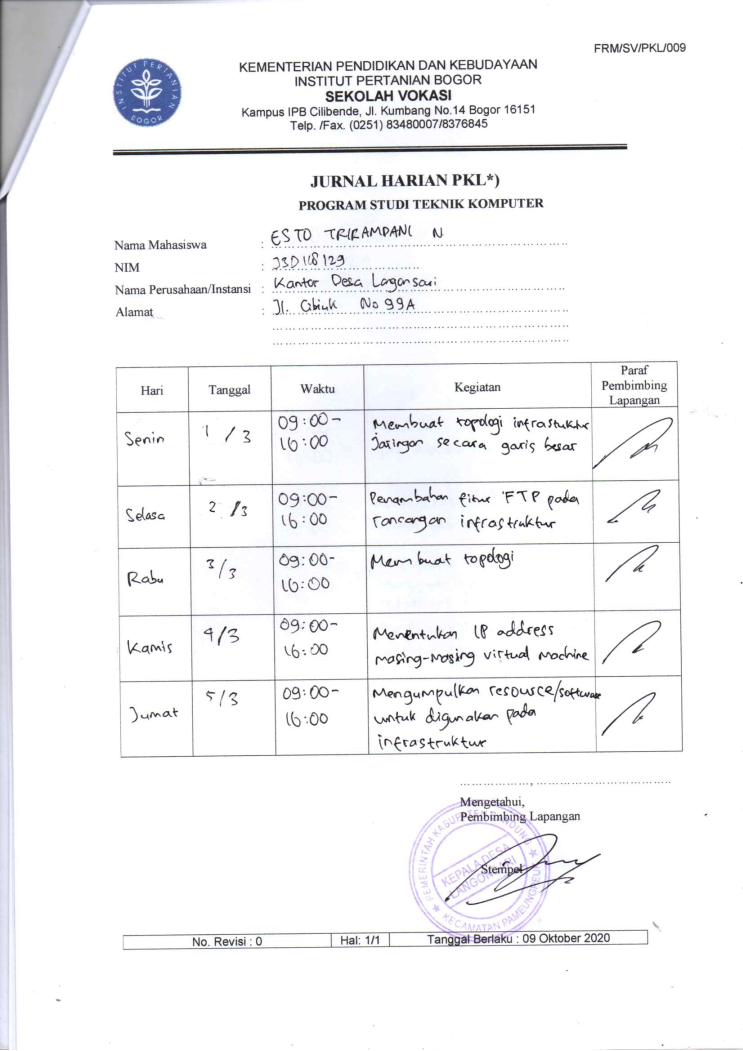 FRM/SV/PKL/009
KEMENTERIAN PENDIDIKAN DAN KEBUDAYAAN
INSTITUT PERTANIAN BOGOR
SEKOLAH VOKASI
Kampus IPB Cilibende, Jl. Kumbang No.14 Bogor 16151
Telp. /Fax. (0251) 83480007/8376845
INSTITUT PERTANIAN
BOGOR
JURNAL HARIAN PKL*)
PROGRAM STUDI TEKNIK KOMPUTER
Nama Mahasiswa : ESTO TRIRAMDANI N
NIM : J3D118129
Nama Perusahaan/Instansi : Kantor Desa Langonsari
Alamat : Jl. Cibiuk No 99A
Hari Tanggal Waktu Kegiatan Paraf Pembimbing Lapangan
Senin 1/3 09:00-16:00 Membuat topologi infrastuktur
jaringan secara garis besar
Selasa 2/3 09:00-16:00 Penambahan fitur FTP pada
rancangan infrastruktur
Rabu 3/3 09:00-16:00 Membuat topologi
Kamis 4/3 09:00-16:00 Menentukan IP address
masing-masing virtual machine
Jumat 5/3 09:00-16:00 Mengumpulkan resource/software
untuk digunakan pada
infrastruktur
Mengetahui,
Pembimbing Lapangan
Stempel
KEPALA DESA
LANGONSARI
No. Revisi : 0 Hal: 1/1 Tanggal Berlaku : 09 Oktober 2020